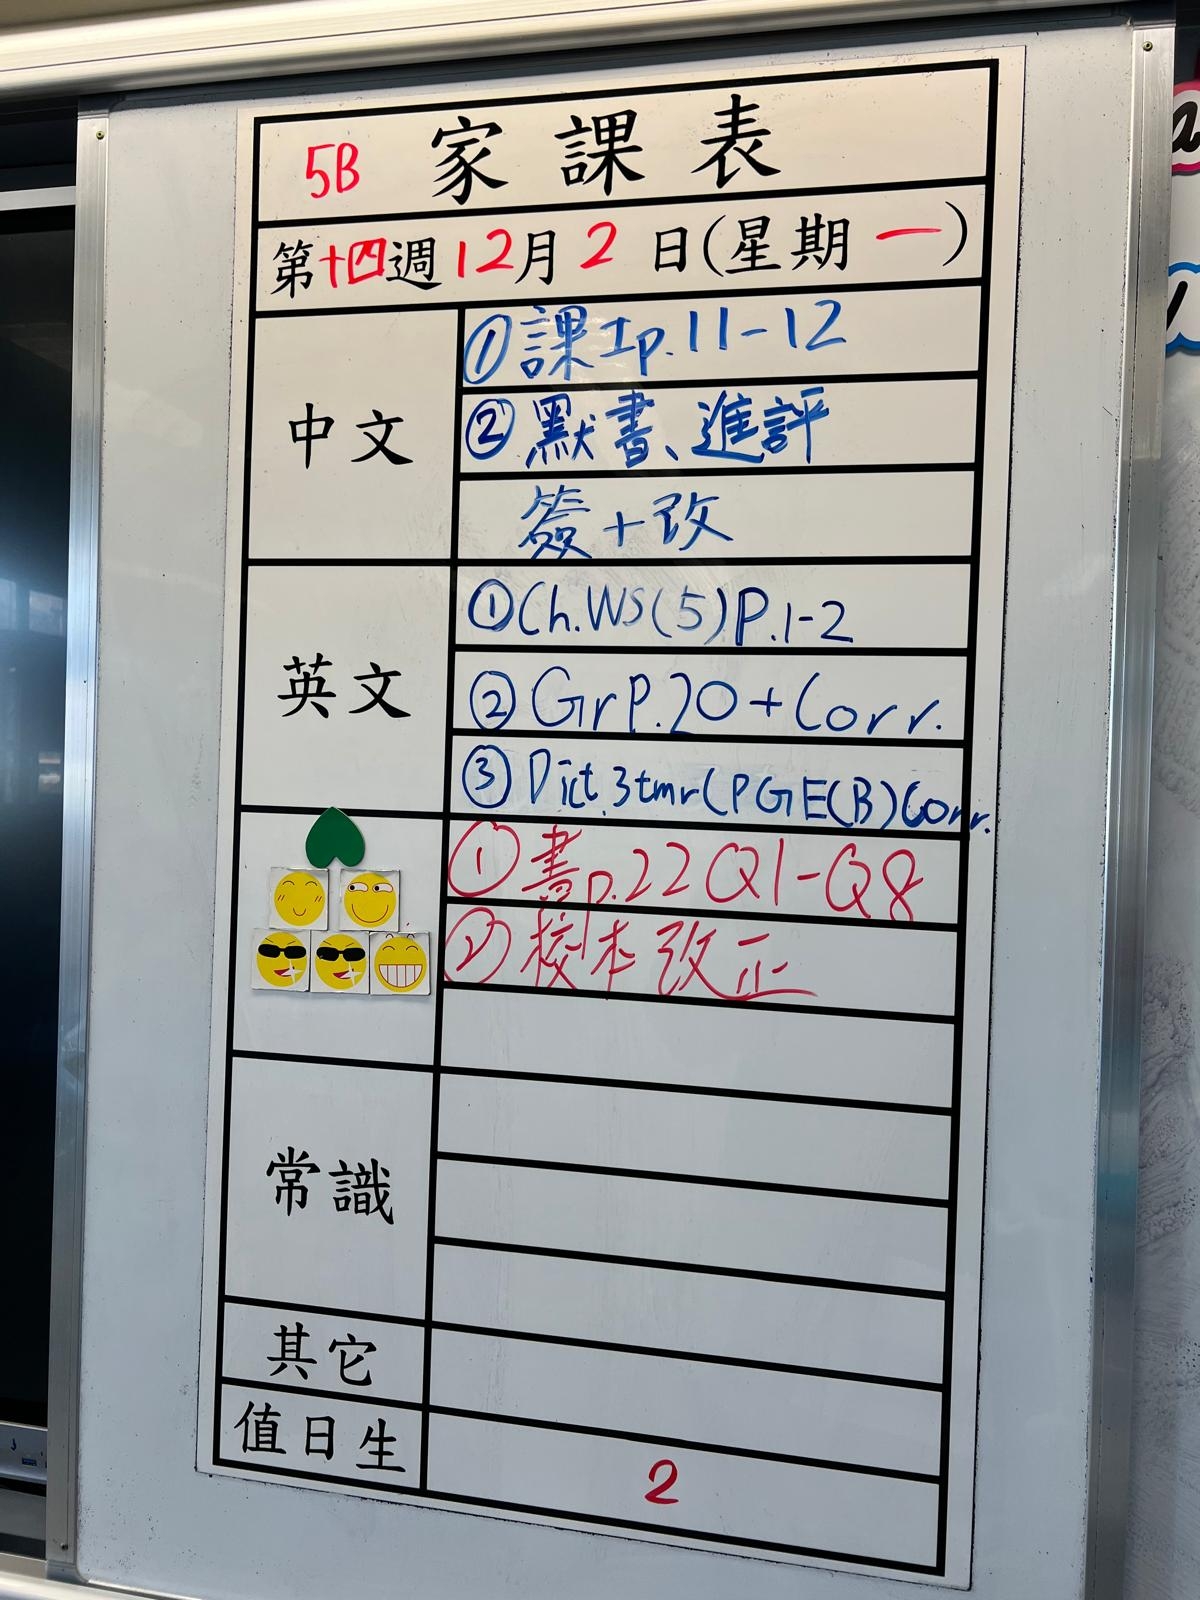 5B 家課表
第十四週12月2日(星期一)
中文
①課工p.11-12
②默書、進評
簽+改
英文
①Ch.WS(5)P.1-2
②Gr P.20+Corr.
③Dict.3tmr(PGE(B)Corr.
①書p.22Q1-Q8
②校本改正
常識
其它
值日生
2